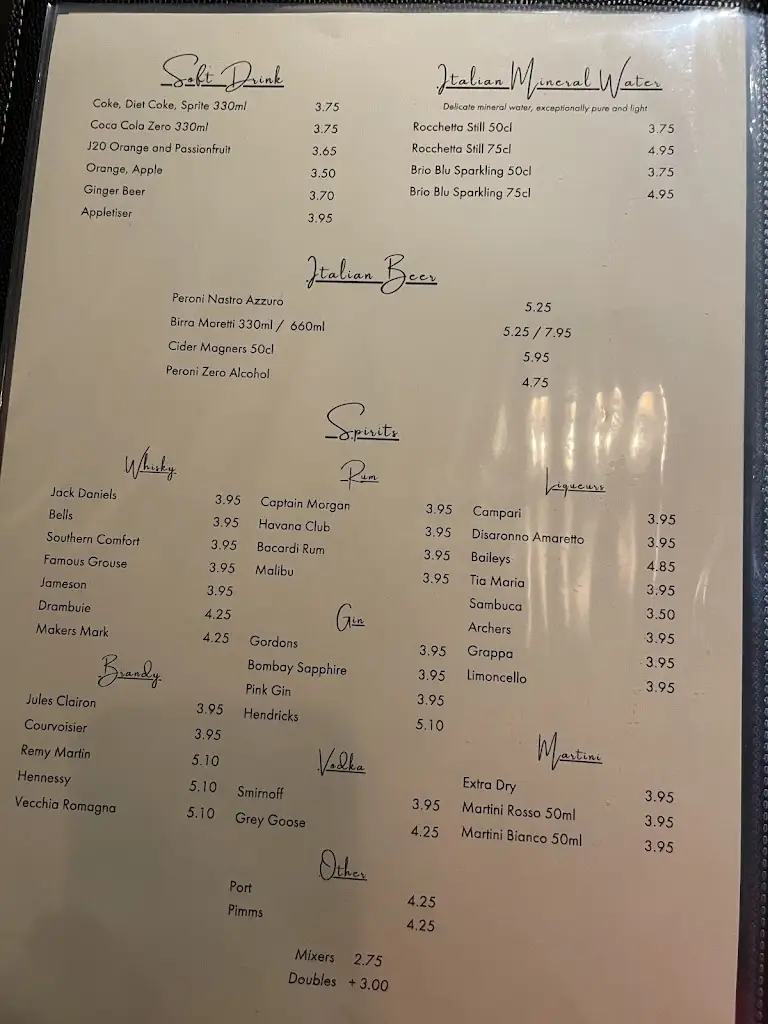 Soft Drink
Coke, Diet Coke, Sprite 330ml 3.75
Coca Cola Zero 330ml 3.75
J20 Orange and Passionfruit 3.65
Orange, Apple 3.50
Ginger Beer 3.70
Appletiser 3.95
Italian Mineral Water
Delicate mineral water, exceptionally pure and light
Rocchetta Still 50cl 3.75
Rocchetta Still 75cl 4.95
Brio Blu Sparkling 50cl 3.75
Brio Blu Sparkling 75cl 4.95
Italian Beer
Peroni Nastro Azzuro 5.25
Birra Moretti 330ml / 660ml 5.25 / 7.95
Cider Magners 50cl 5.95
Peroni Zero Alcohol 4.75
Spirits
Whisky
Jack Daniels 3.95
Bells 3.95
Southern Comfort 3.95
Famous Grouse 3.95
Jameson 3.95
Drambuie 4.25
Makers Mark 4.25
Brandy
Jules Clairon 3.95
Courvoisier 3.95
Remy Martin 5.10
Hennessy 5.10
Vecchia Romagna 5.10
Rum
Captain Morgan 3.95
Havana Club 3.95
Bacardi Rum 3.95
Malibu 3.95
Gin
Gordons 3.95
Bombay Sapphire 3.95
Pink Gin 3.95
Hendricks 5.10
Vodka
Smirnoff 3.95
Grey Goose 4.25
Liqueurs
Campari 3.95
Disaronno Amaretto 3.95
Baileys 4.85
Tia Maria 3.95
Sambuca 3.50
Archers 3.95
Grappa 3.95
Limoncello 3.95
Martini
Extra Dry 3.95
Martini Rosso 50ml 3.95
Martini Bianco 50ml 3.95
Other
Port 4.25
Pimms 4.25
Mixers 2.75
Doubles +3.00